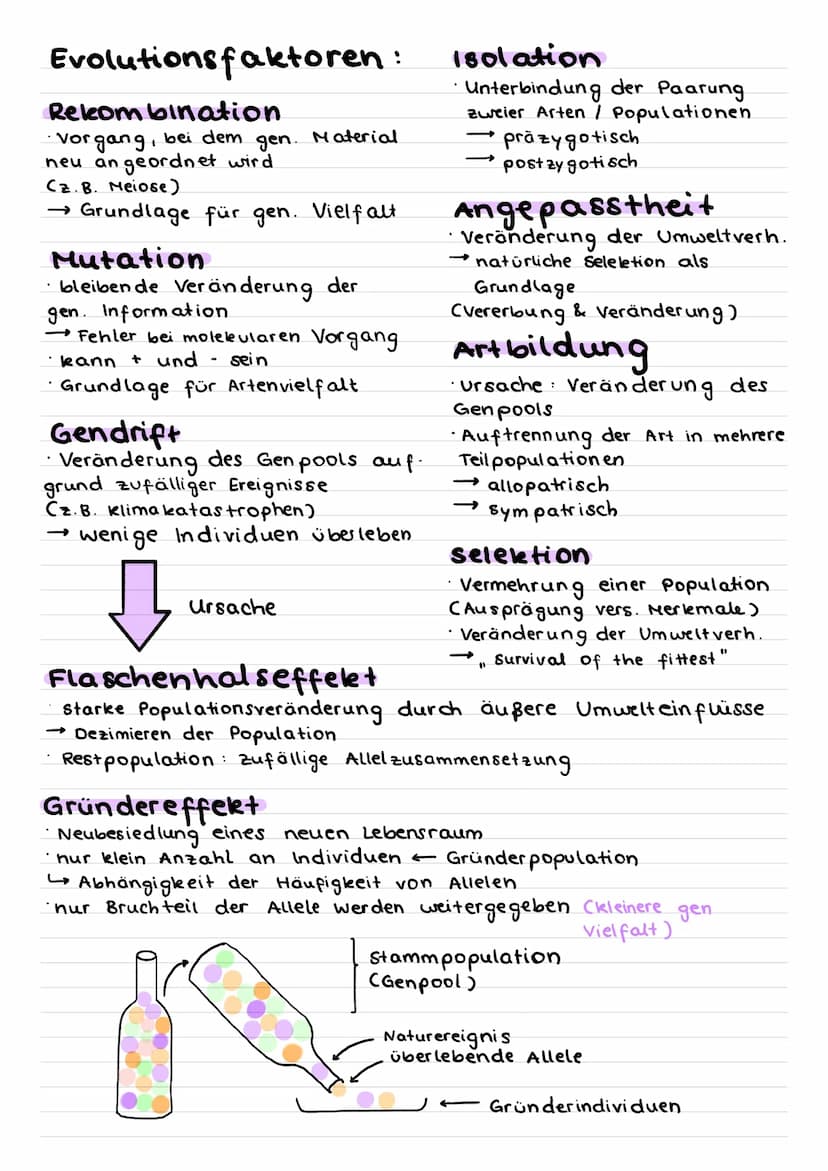 Evolutionsfaktoren:
Rekombination
· Vorgang, bei dem gen. Material
neu angeordnet wird
(z.B. Meiose)
→ Grundlage für gen. Vielfalt
Mutation
· bleibende Veränderung der
gen. Information
→ Fehler bei molekularen Vorgang
· kann + und - sein
· Grundlage für Artenvielfalt
Gendrift
· Veränderung des Genpools auf-
grund zufälliger Ereignisse
(z.B. Klimakatastrophen)
→ wenige Individuen überleben
Ursache
Isolation
· Unterbindung der Paarung
zweier Arten / Populationen
→ präzygotisch
→ postzygotisch
Angepasstheit
· Veränderung der Umweltverh.
→ natürliche Selektion als
Grundlage
(Vererbung & Veränderung)
Artbildung
· Ursache: Veränderung des
Genpools
· Auftrennung der Art in mehrere
Teilpopulationen
→ allopatrisch
→ sympatrisch
Selektion
· Vermehrung einer Population
(Ausprägung vers. Merkmale)
· Veränderung der Umweltverh.
→ „Survival of the fittest"
Flaschenhalseffekt
· starke Populationsveränderung durch äußere Umwelteinflüsse
→ Dezimieren der Population
· Restpopulation: zufällige Allelzusammensetzung
Gründereffekt
· Neubesiedlung eines neuen Lebensraum
· nur klein Anzahl an Individuen ← Gründerpopulation
↳ Abhängigkeit der Häufigkeit von Allelen
· nur Bruchteil der Allele werden weitergegeben (kleinere gen
Vielfalt)
Stammpopulation
(Genpool)
Naturereignis
überlebende Allele
← Gründerindividuen